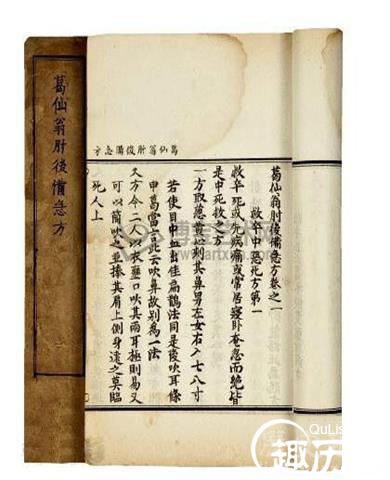 葛仙翁肘後備急方
葛仙翁肘後備急方
葛仙翁肘後備急方卷之一
救卒中惡死方第一
救卒死或先病痛或常居寢卧奄忽而絶皆
是中死救之方
一方取葱黄心刺其鼻男左女右入七八寸
若使目中血出佳扁鵲法同是後吹耳條
中葛當言此云吹鼻故别為一法
又方令二人以衣壅口吹其兩耳極則易又
可以筒吹之並捧其肩上側身遠之莫臨
死人上
QuLis
趣历